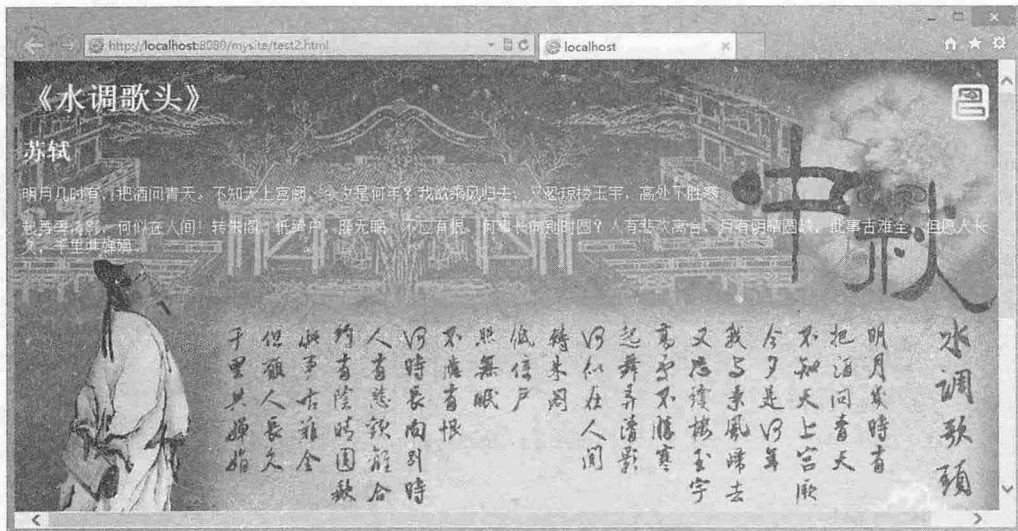 http://localhost:8080/mysite/test2.html
localhost
《水调歌头》
苏轼
明月几时有，把酒问青天。不知天上宫阙，今夕是何年？我欲乘风归去，又恐琼楼玉宇，高处不胜寒
起舞弄清影，何似在人间！转朱阁，低绮户，照无眠。不应有恨，何事长向别时圆？人有悲欢离合，月有阴晴圆缺，此事古难全。但愿人长
久，千里共婵娟。
中秋
水調歌頭
明月幾時有
把酒问青天
不知天上宫阙
今夕是何年
我欲乘風歸去
又恐瓊樓玉宇
高處不勝寒
起舞弄清影
何似在人间
轉朱阁
低绮户
照無眠
不應有恨
何時長向别時
人有悲歡離合
有陰晴圓缺
此事古難全
但願人長久
千里共嬋娟